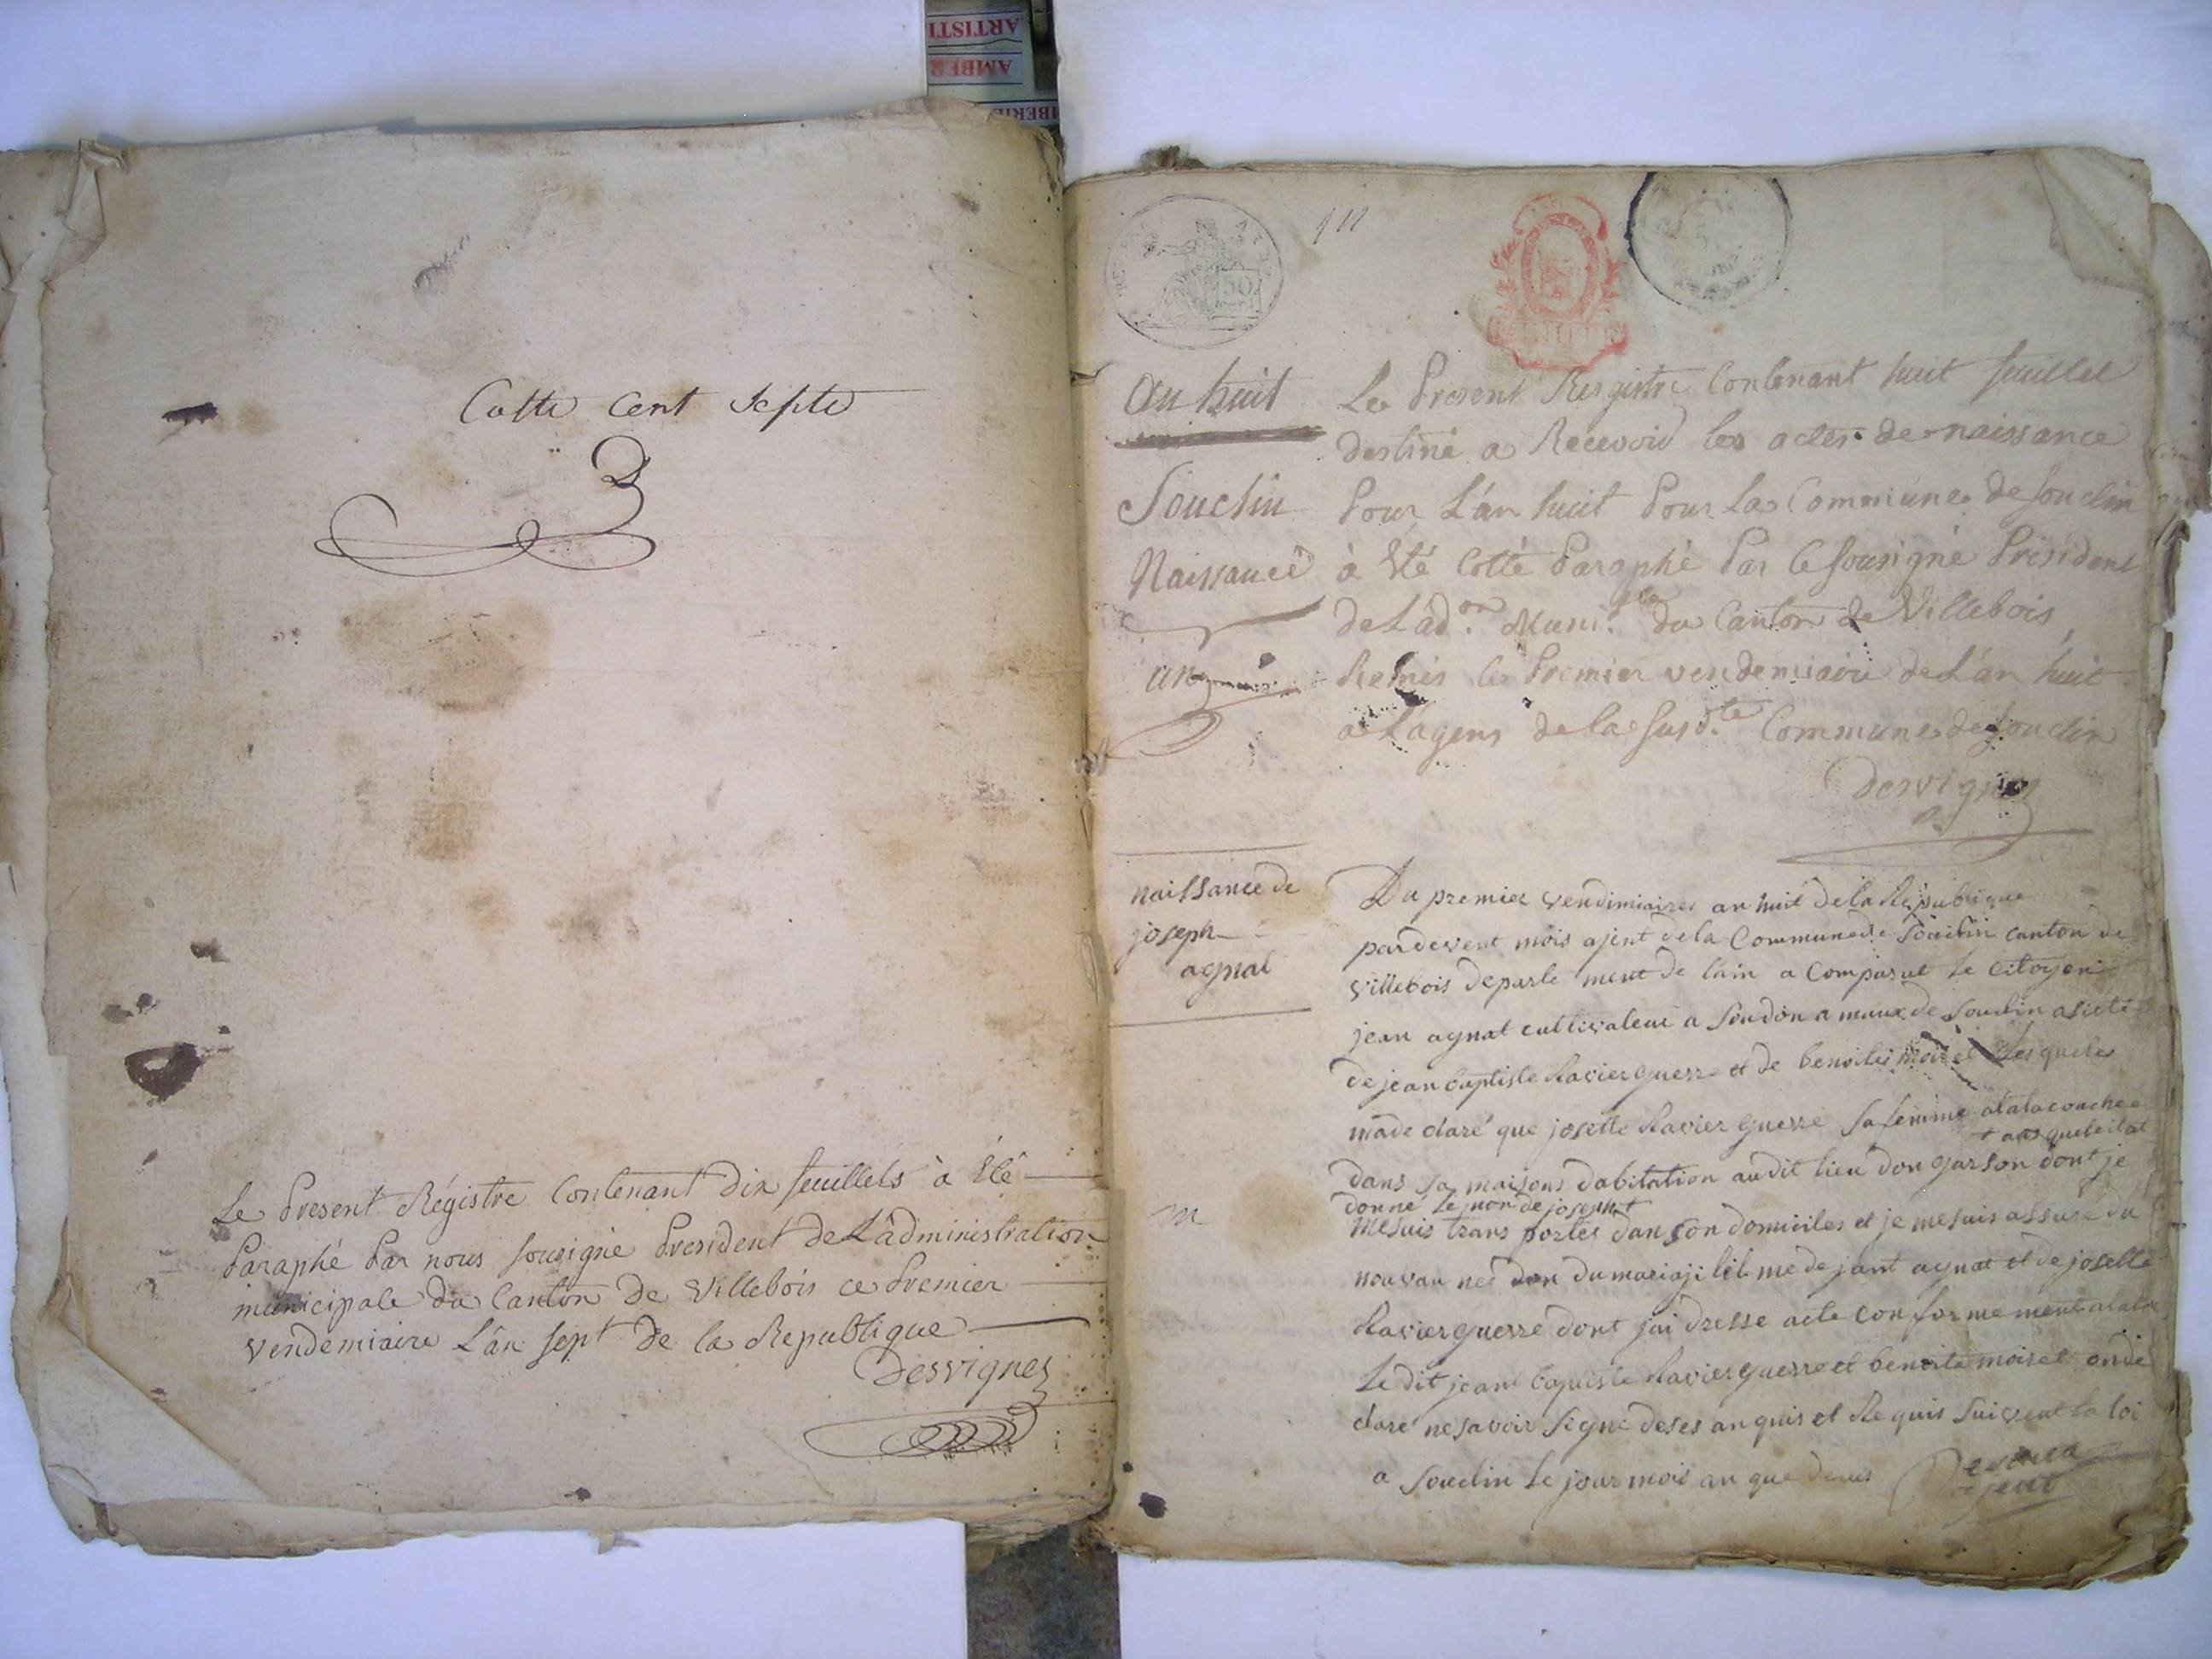 Cotte Cent Septe
Le Present Régistre Contenant dix feuillets à Été
Paraphé Par nous sousigné President de L'administration
municipale du Canton de Villebois ce Premier
Vendemiaire L'an sept de la Republique
Desvignes
ARTISTI
AMBER
50
an huit
Souclin
Naissance
un
Le Present Regisitre Contenant huit feuillet
destiné a Recevoir les actes de naissance
Pour L'an huit Pour La Commune de Souclin
à Eté Cotté Paraphé Par le sousigné Président
de L'ad.on Muni.le du Canton de Villebois
Remis le Premier vendemiaire de L'an huit
a L'agens de la susd.te Commune de Souclin
Desvignes
naissance de
joseph
agnat
Du premier vendimiaires an huit de la Republique
pardevent mois ajent de la Commune de Souclin canton de
villebois departe ment de lain a Comparut le Citoyen
jean agnat cultivateur a Soudon a maux de Souclin asisté
de jean baptiste Ravier guerre et de benoite moiret Lesqueles
made claré que josette Ravier guerre sa femme
dans sa maisons dabitation audit lieu don garson dont je
donné le nom de joseph
me suis trans portés dan son domiciles et je me suis assuré du
nouvau neé du mariaji lit me de jant agnat et de josette
Ravier guerre dont jai dresse acte con for me ment a la loi
Ledit jean baptiste Ravier guerre et benoite moiret on dé
claré ne savoir signé de ses an quis et Re quis suivent la loi
a Souclin le jour mois an que deus
ajent